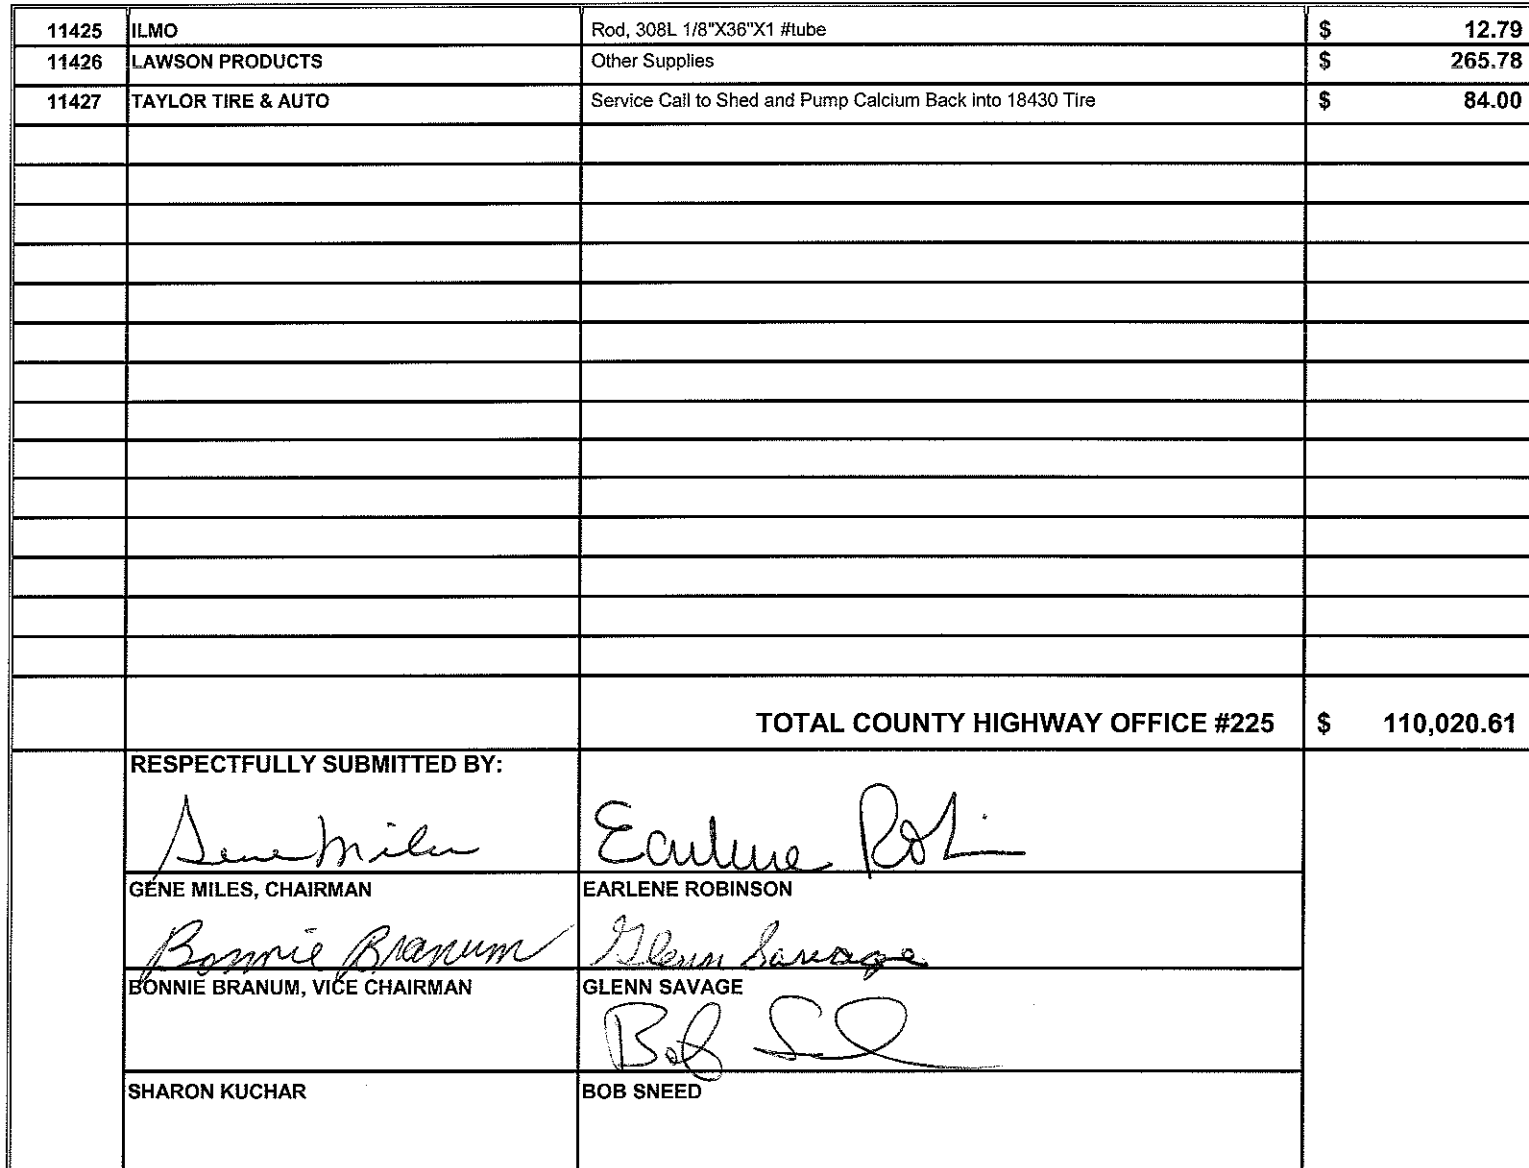 11425 ILMO Rod, 308L 1/8"X36"X1 #tube $ 12.79
11426 LAWSON PRODUCTS Other Supplies $ 265.78
11427 TAYLOR TIRE & AUTO Service Call to Shed and Pump Calcium Back into 18430 Tire $ 84.00
TOTAL COUNTY HIGHWAY OFFICE #225 $ 110,020.61
RESPECTFULLY SUBMITTED BY:
Gene Miles Earlene Robi
GENE MILES, CHAIRMAN EARLENE ROBINSON
Bonnie Branum Glenn Savage
BONNIE BRANUM, VICE CHAIRMAN GLENN SAVAGE
Bob
SHARON KUCHAR BOB SNEED